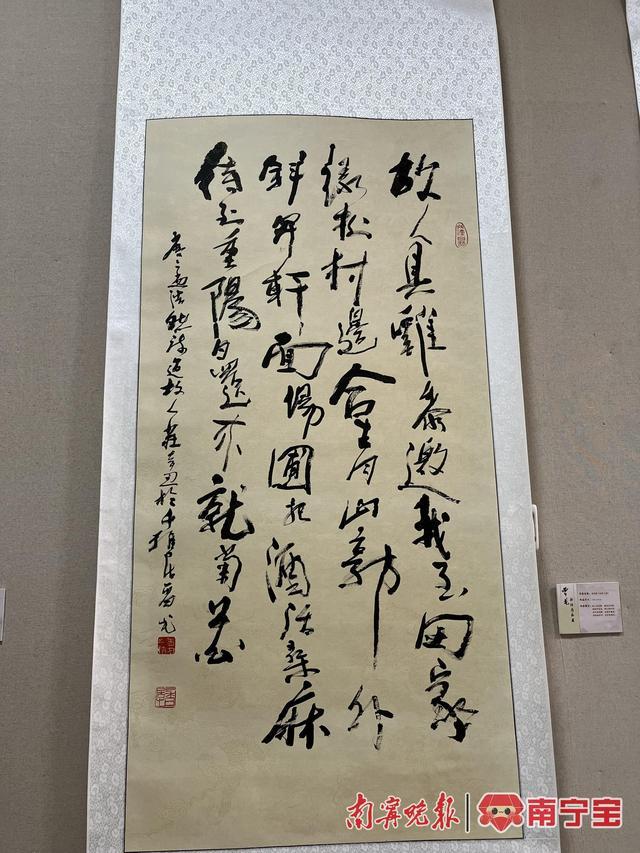 故人具雞黍邀我至田家
緑樹村邊合青山郭外
斜開軒面場圃把酒話桑麻
待到重陽日還來就菊花
唐孟浩然詩過故人莊
南寧晚报 南宁宝